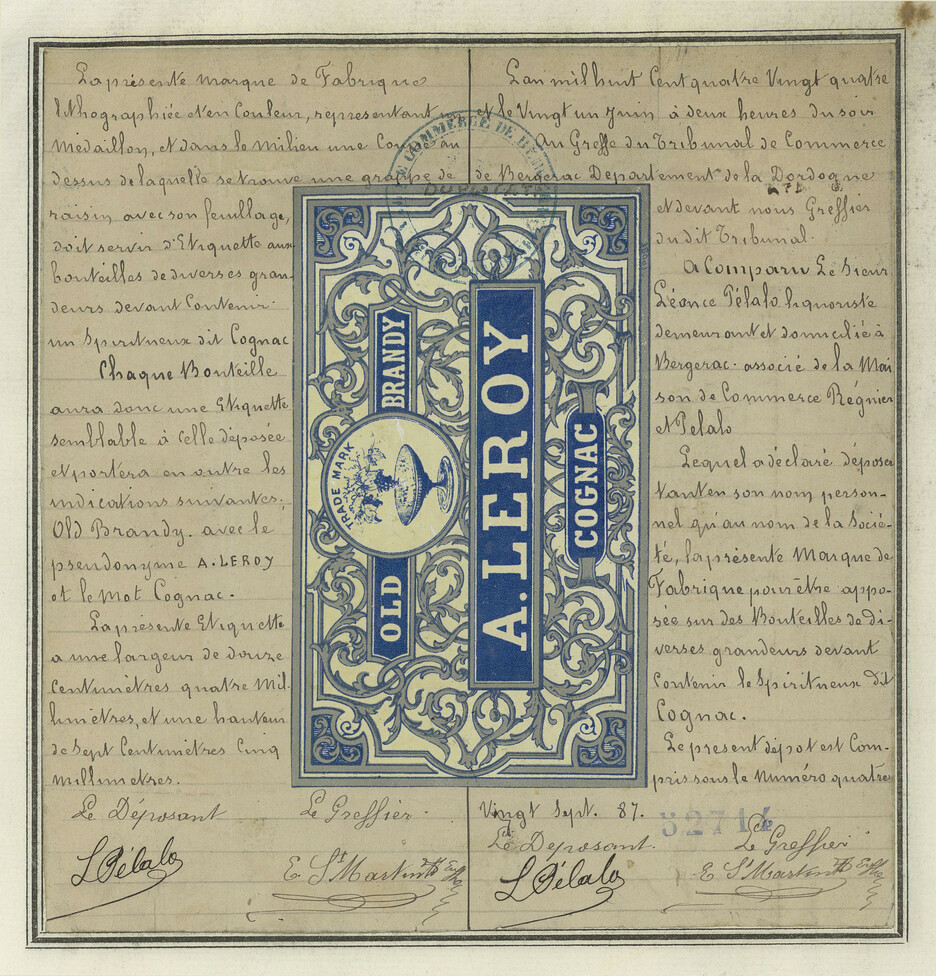 La présente marque de Fabrique
lithographiée et en Couleur, représentant un
Médaillon, et dans le Milieu une Coupe au
dessus de laquelle se trouve une grappe de
raisin avec son feuillage,
doit servir d'Etiquette aux
bouteilles de diverses gran-
deurs devant Contenir
un Spiritueux dit Cognac
Chaque Bouteille
aura donc une Etiquette
semblable à celle déposée
et portera en outre les
indications suivantes:
Old Brandy. avec le
pseudonyme A. LEROY
et le Mot Cognac.
La présente Etiquette
a une largeur de douze
Centimètres quatre Mil-
limètres, et une hauteur
de Sept Centimètres Cinq
Millimètres.
Le Déposant Le Greffier.
L Pélalo E. St Martin
L'an mil huit Cent quatre Vingt quatre
et le Vingt un Juin à deux heures du soir
Au Greffe du Tribunal de Commerce
de Bergerac Département de la Dordogne
et devant nous Greffier
du dit Tribunal.
A Comparu Le Sieur
Léonce Pélalo liquoriste
demeurant et domicilié à
Bergerac. associé de la Mai
son de Commerce Régnier
et Pélalo
Lequel a déclaré déposer
tant en son nom person-
nel qu'au nom de la Socié-
té, la présente Marque de
Fabrique pour être appo-
sée sur des Bouteilles de di-
verses grandeurs devant
Contenir le Spiritueux dit
Cognac.
Le présent dépot est Com-
pris sous le Numéro quatre
Vingt Sept. 87.
32714
Le Déposant. Le Greffier
L Pélalo E. St Martin
COMMERCE DE
OLD BRANDY
TRADE MARK
A. LEROY
COGNAC